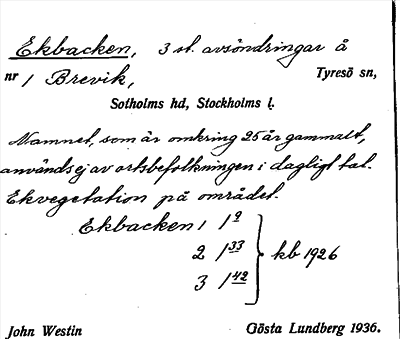 Ekbacken, 3 st. avsöndringar å
nr 1 Brevik, Tyresö sn,
Sotholms hd, Stockholms l.
Namnet, som är omkring 25 år gammalt,
används ej av ortsbefolkningen i dagligt tal.
Ekvegetation på området.
Ekbacken 1 1⁹
2 1³³ kb 1926
3 1⁴²
John Westin Gösta Lundberg 1936.